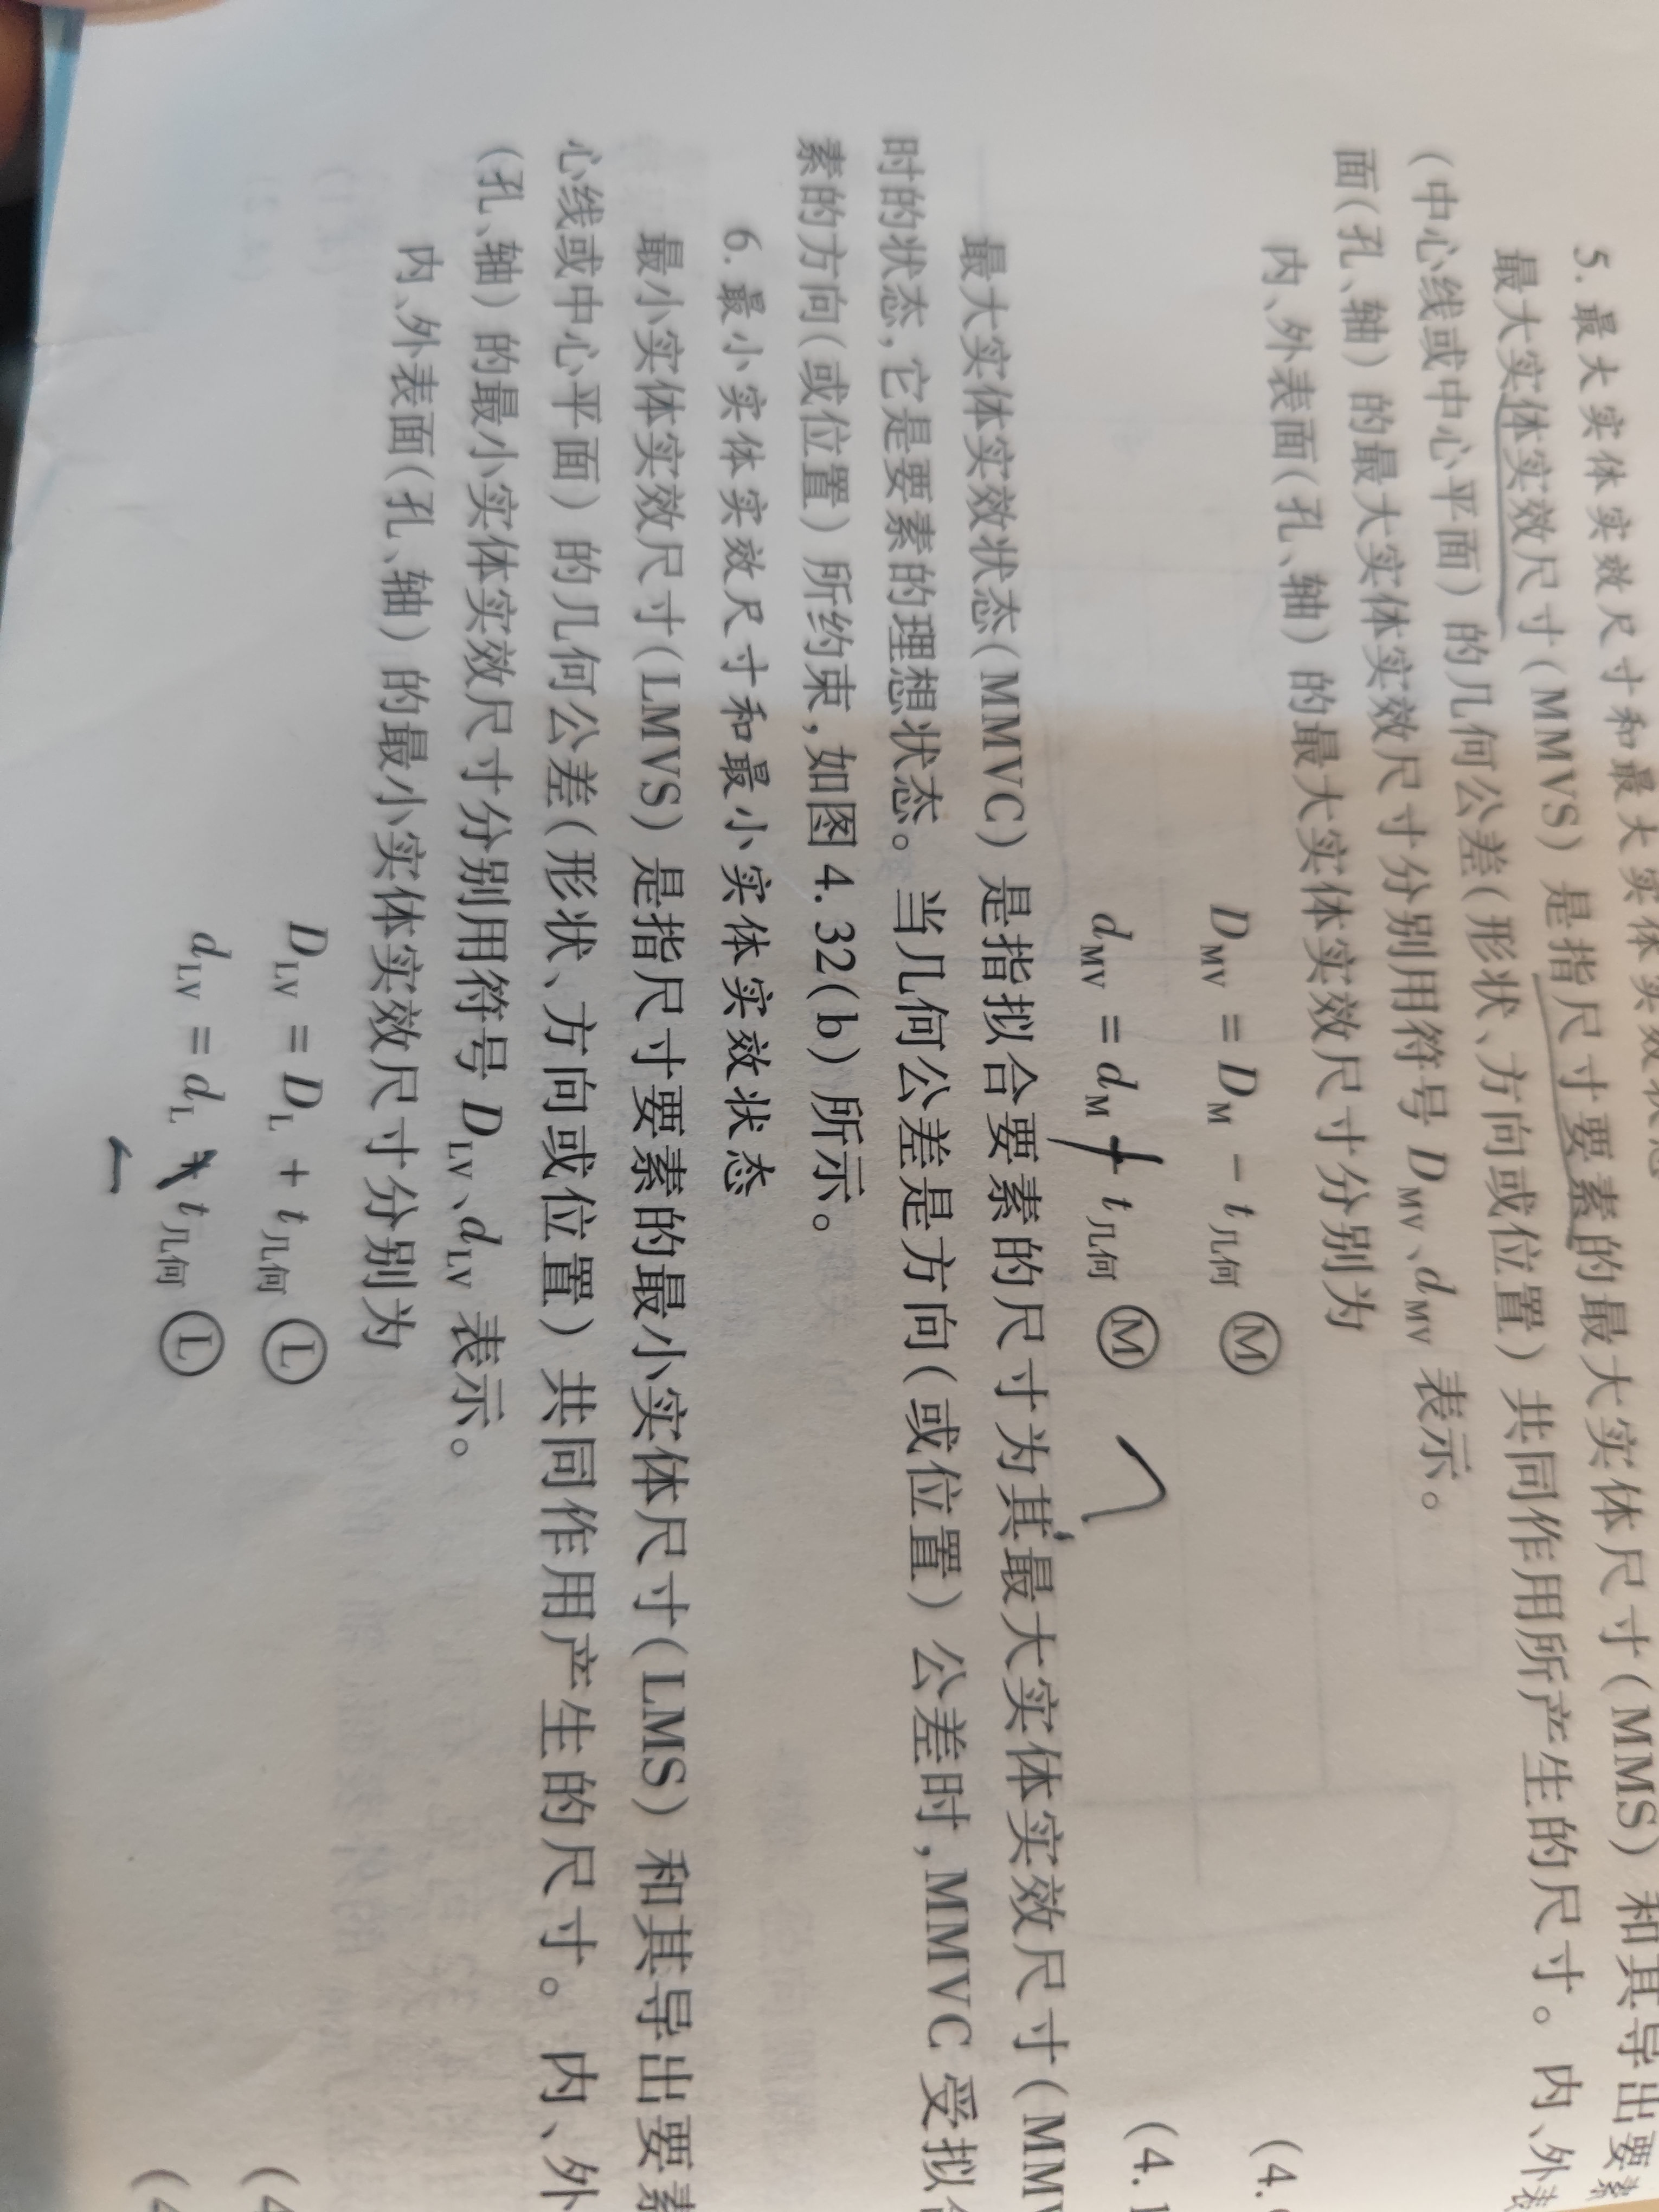 5. 最大实体实效尺寸和最大实体实效状态
最大实体实效尺寸(MMVS)是指尺寸要素的最大实体尺寸(MMS)和其导出要素
(中心线或中心平面)的几何公差(形状、方向或位置)共同作用所产生的尺寸。内、外表
面(孔、轴)的最大实体实效尺寸分别用符号 D_MV、d_MV 表示。
内、外表面(孔、轴)的最大实体实效尺寸分别为
D_MV = D_M - t_几何 Ⓜ (4.
d_MV = d_M + t_几何 Ⓜ (4.1
最大实体实效状态(MMVC)是指拟合要素的尺寸为其最大实体实效尺寸(MMV
时的状态,它是要素的理想状态。当几何公差是方向(或位置)公差时,MMVC 受拟
素的方向(或位置)所约束,如图 4.32(b)所示。
6. 最小实体实效尺寸和最小实体实效状态
最小实体实效尺寸(LMVS)是指尺寸要素的最小实体尺寸(LMS)和其导出要素
心线或中心平面)的几何公差(形状、方向或位置)共同作用产生的尺寸。内、外
(孔、轴)的最小实体实效尺寸分别用符号 D_LV、d_LV 表示。
内、外表面(孔、轴)的最小实体实效尺寸分别为
D_LV = D_L + t_几何 Ⓛ (4
d_LV = d_L t_几何 Ⓛ (4